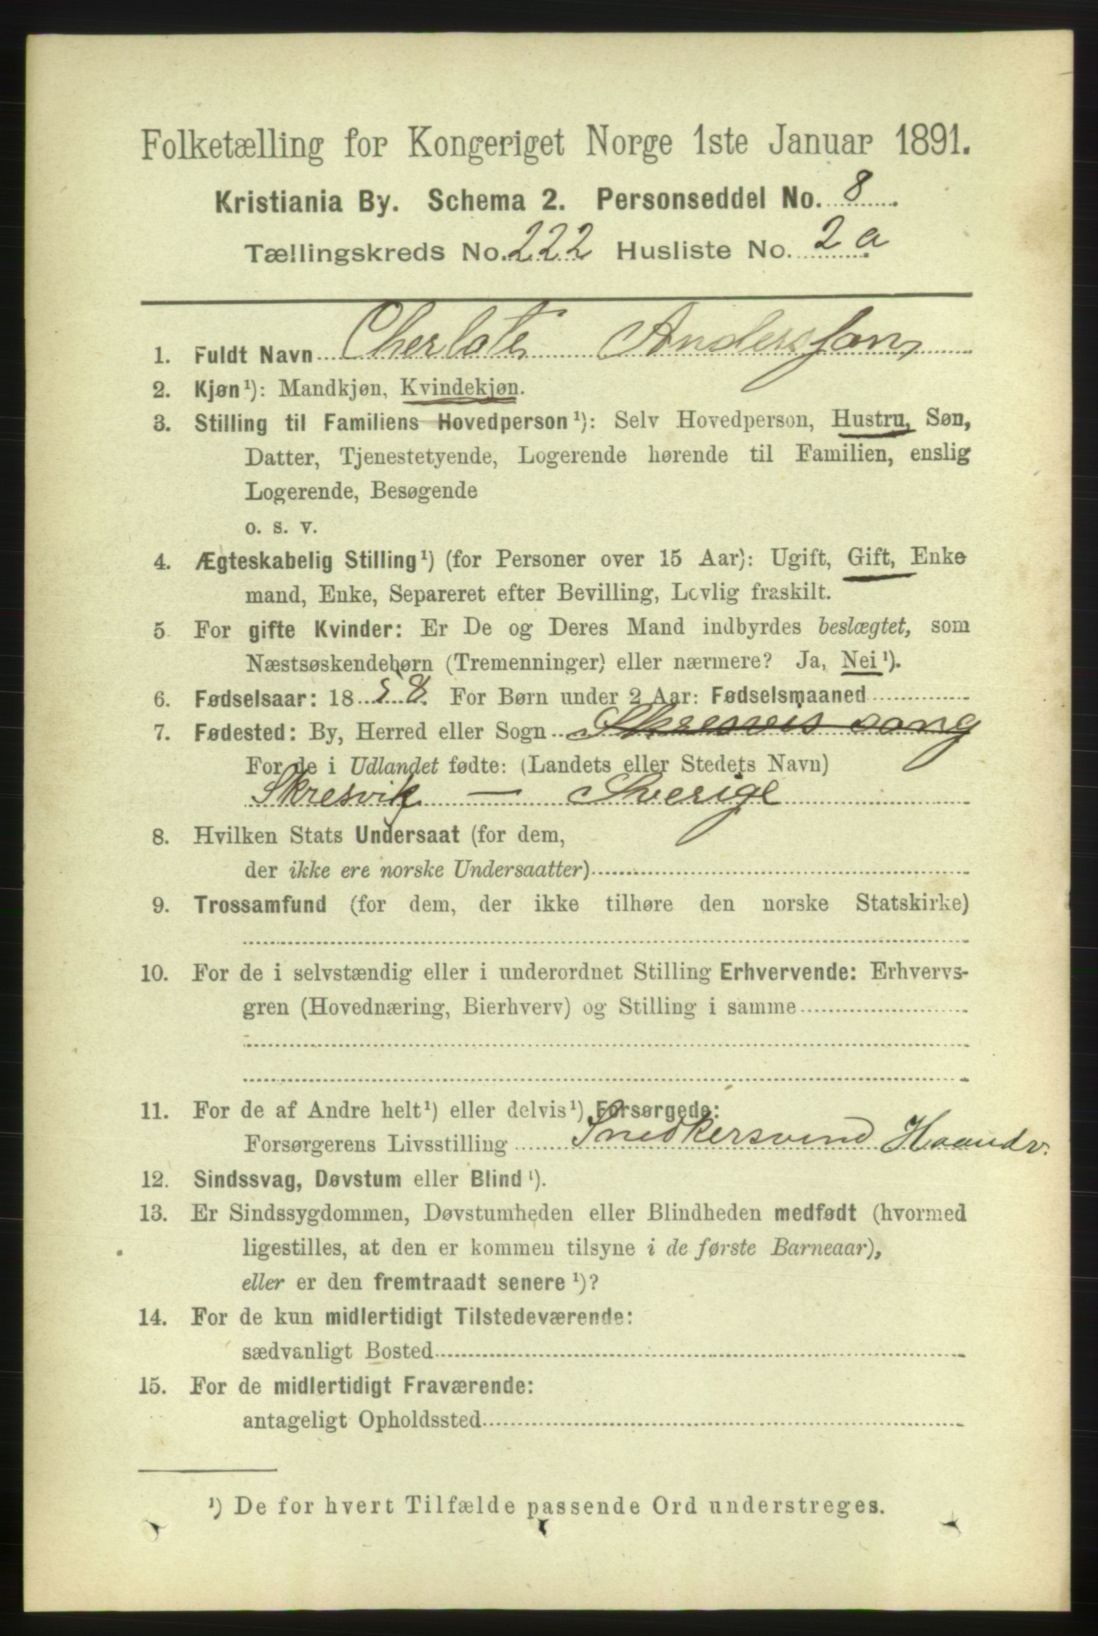 Folketælling for Kongeriget Norge 1ste Januar 1891.
Kristiania By. Schema 2. Personseddel No. 8.
Tællingskreds No. 222 Husliste No. 2 a
1. Fuldt Navn Cherlote Andersson
2. Kjøn¹): Mandkjøn, Kvindekjøn.
3. Stilling til Familiens Hovedperson¹): Selv Hovedperson, Hustru, Søn,
Datter, Tjenestetyende, Logerende hørende til Familien, enslig
Logerende, Besøgende
o. s. v.
4. Ægteskabelig Stilling¹) (for Personer over 15 Aar): Ugift, Gift, Enke
mand, Enke, Separeret efter Bevilling, Lovlig fraskilt.
5 For gifte Kvinder: Er De og Deres Mand indbyrdes beslægtet, som
Næstsøskendebørn (Tremenninger) eller nærmere? Ja, Nei¹).
6. Fødselsaar: 1858. For Børn under 2 Aar: Fødselsmaaned
7. Fødested: By, Herred eller Sogn Skresvis song
For de i Udlandet fødte: (Landets eller Stedets Navn)
Skresvik — Sverige
8. Hvilken Stats Undersaat (for dem,
der ikke ere norske Undersaatter)
9. Trossamfund (for dem, der ikke tilhøre den norske Statskirke)
10. For de i selvstændig eller i underordnet Stilling Erhvervende: Erhvervs-
gren (Hovednæring, Bierhverv) og Stilling i samme
11. For de af Andre helt¹) eller delvis¹) Forsørgede:
Forsørgerens Livsstilling Snedkersvend Haandv.
12. Sindssvag, Døvstum eller Blind¹).
13. Er Sindssygdommen, Døvstumheden eller Blindheden medfødt (hvormed
ligestilles, at den er kommen tilsyne i de første Barneaar),
eller er den fremtraadt senere¹)?
14. For de kun midlertidigt Tilstedeværende:
sædvanligt Bosted
15. For de midlertidigt Fraværende:
antageligt Opholdssted
¹) De for hvert Tilfælde passende Ord understreges.